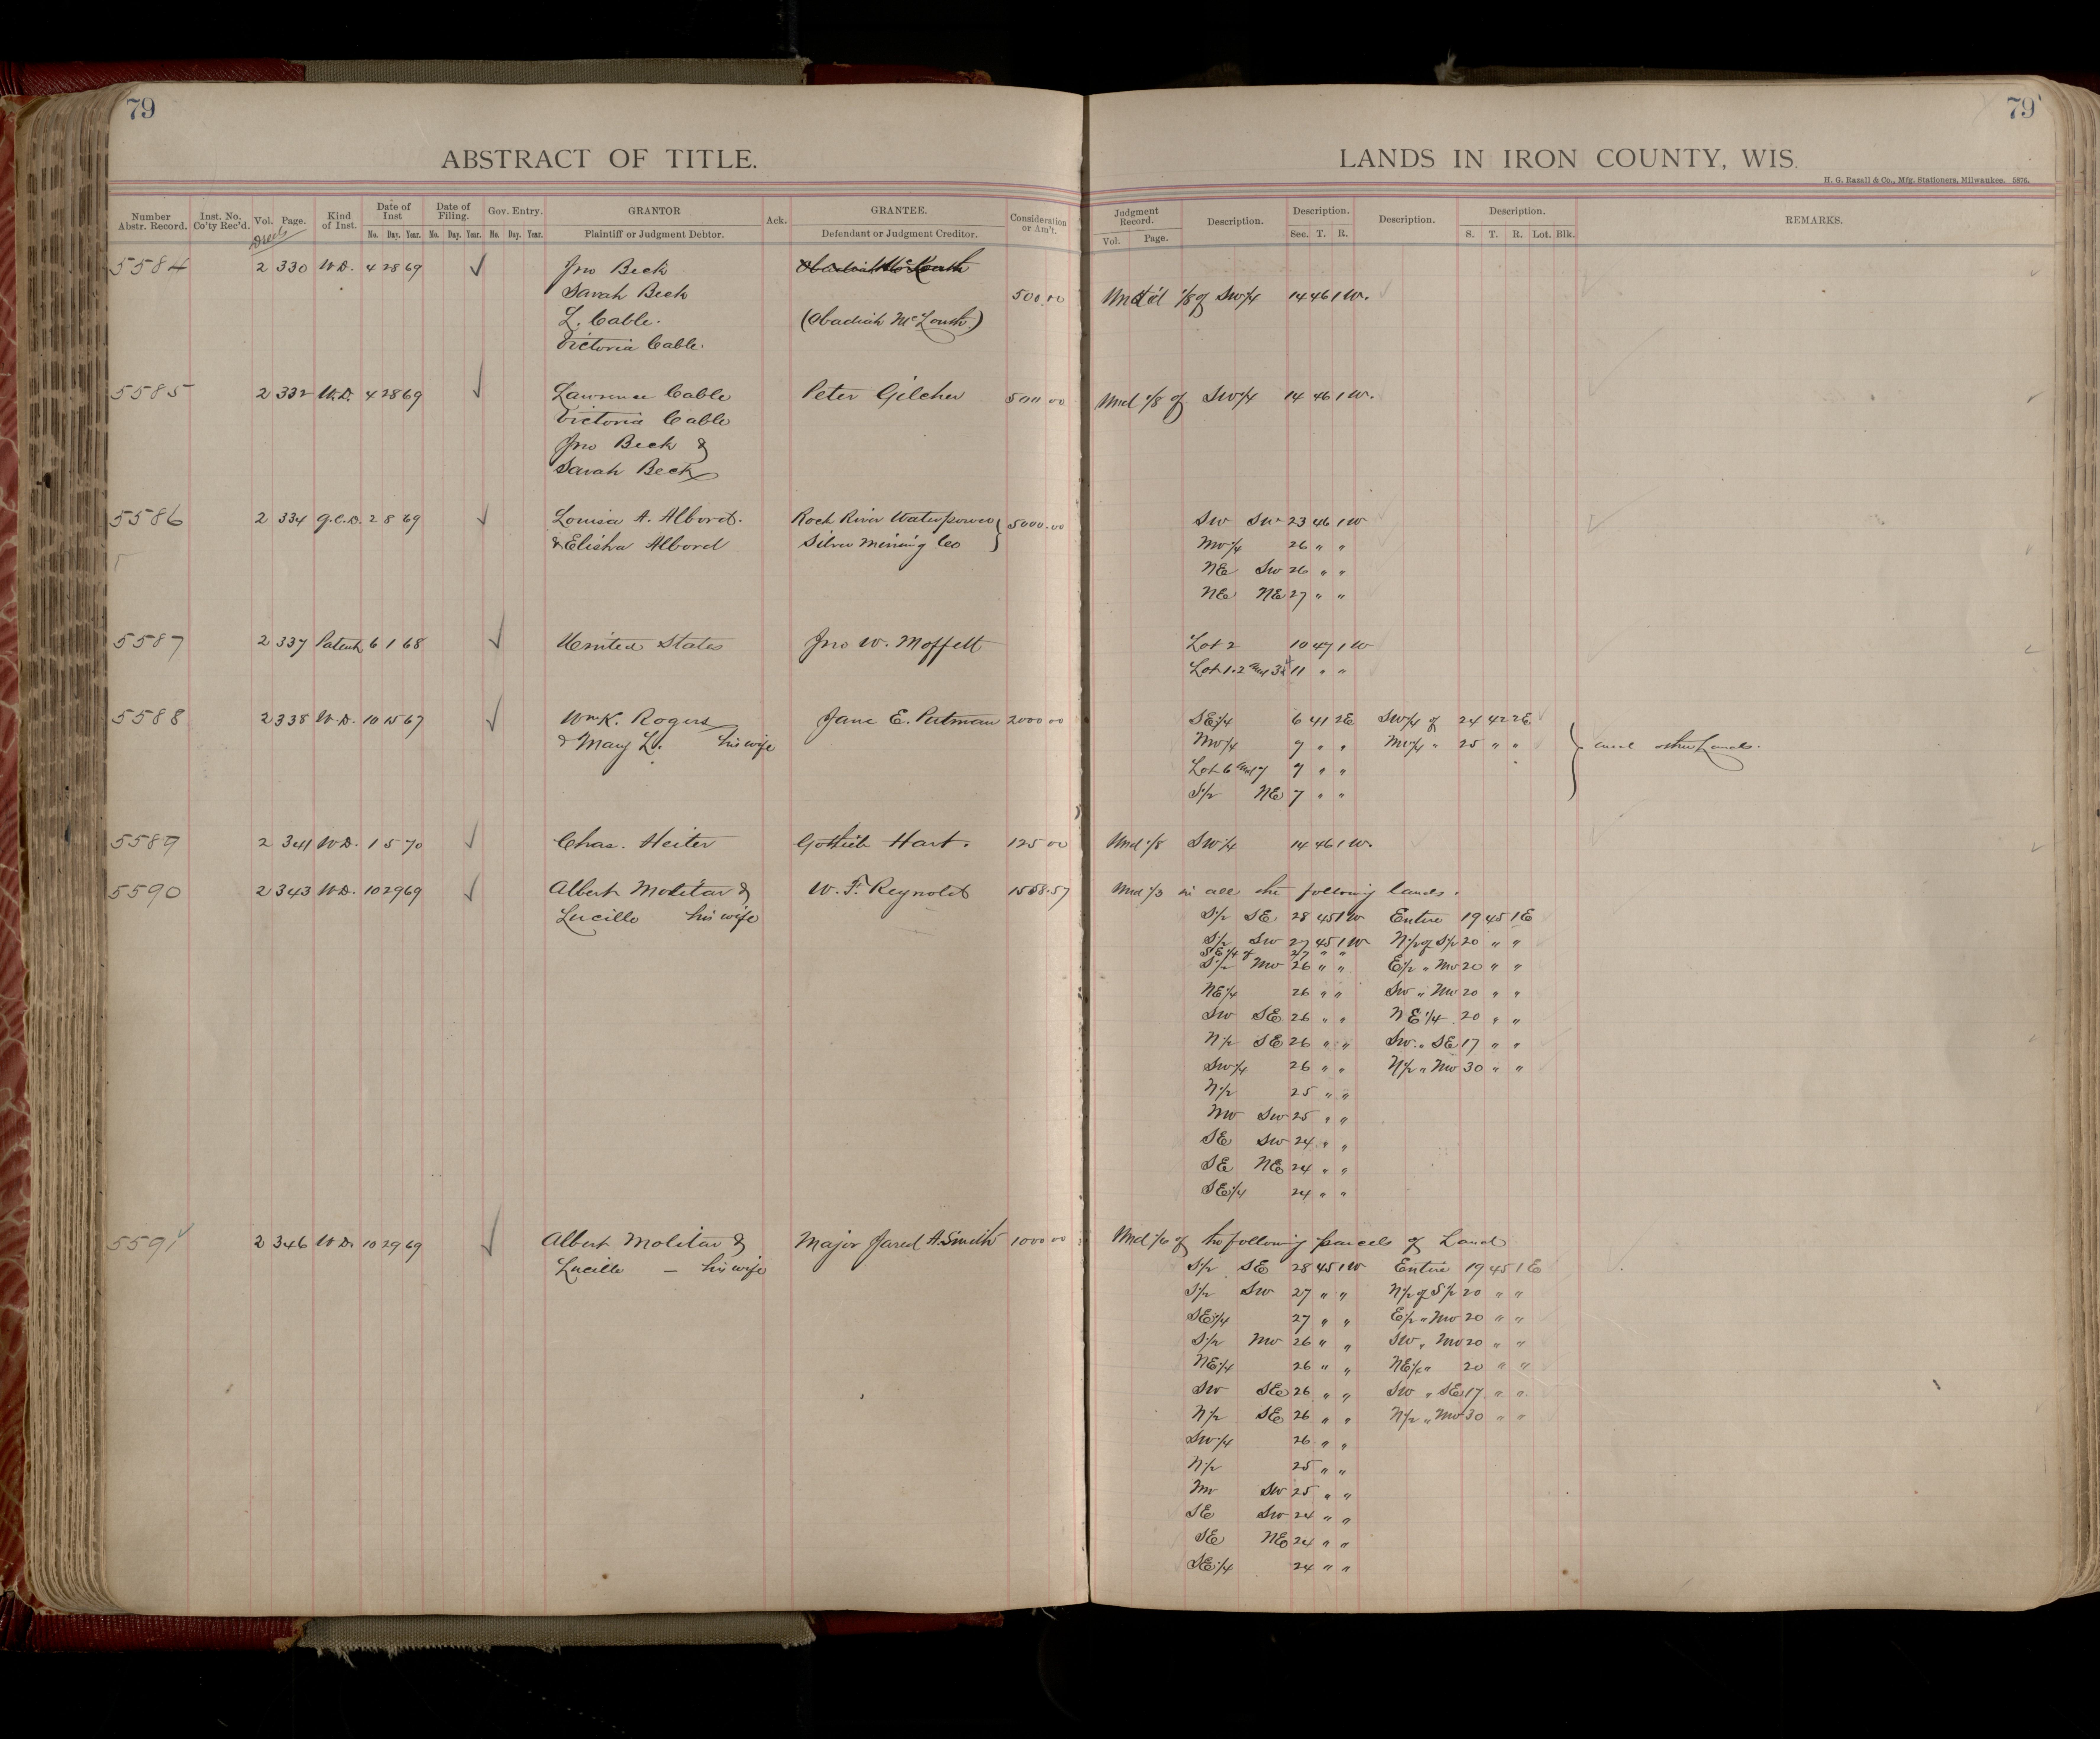 79
79
ABSTRACT OF TITLE.
LANDS IN IRON COUNTY, WIS.
H. G. Razall & Co., Mfg. Stationers, Milwaukee. 5876.
Number Abstr. Record. Inst. No. Co'ty Rec'd. Vol. Page. Kind of Inst. Date of Inst Mo. Day. Year. Date of Filing. Mo. Day. Year. Gov. Entry. Mo. Day. Year. GRANTOR Plaintiff or Judgment Debtor. Ack. GRANTEE. Defendant or Judgment Creditor. Consideration or Am't. Judgment Record. Vol. Page. Description. Description. Sec. T. R. Description. Description. S. T. R. Lot. Blk. REMARKS.
Deeds
5584 2 330 W.D. 4 28 69 ✓ Jno Beck
Sarah Beck 500.00 Und'd 1/8 of SW1/4 14 46 1 W.
L. Cable. (Obadiah McLouth)
Victoria Cable.
5585 2 332 W.D. 4 28 69 ✓ Lawrence Cable Peter Gilcher 500 00 Und 1/8 of SW1/4 14 46 1 W.
Victoria Cable
Jno Beck &
Sarah Beck
5586 2 334 Q.C.D. 2 8 69 ✓ Louisa A. Albord. Rock River Waterpower 5000.00 SW SW 23 46 1 W
& Elisha Albord Silver Mining Co NW1/4 26 " "
NE SW 26 " "
NE NE 27 " "
5587 2 337 Patent 6 1 68 ✓ United States Jno W. Moffett Lot 2 10 47 1 W
Lot 1.2 and 3 11 " "
5588 2 338 W.D. 10 15 67 ✓ Wm K. Rogers Jane E. Putman 2000 00 SE1/4 6 41 2E SW1/4 of 24 42 2E
& Mary L. his wife NW1/4 7 " " NW1/4 " 25 " " and other Lands.
Lot 6 and 7 7 " "
S1/2 NE 7 " "
5589 2 341 W.D. 1 5 70 ✓ Chas. Heiter Gotlieb Hart. 125 00 Und 1/8 SW1/4 14 46 1 W.
5590 2 343 W.D. 10 29 69 ✓ Albert Molitar & W. F. Reynolds 1558.57 Und 1/3 in all the following lands.
Lucille his wife S1/2 SE 28 45 1 W Entire 19 45 1 E
S1/2 SW 27 45 1 W N1/2 of S1/2 20 " "
SE1/4 of 27 " "
S1/2 NW 26 " " E1/2 " NW 20 " "
NE1/4 26 " " SW " NW 20 " "
SW SE 26 " " NE1/4 20 " "
N1/2 SE 26 " " SW " SE 17 " "
SW1/4 26 " " N1/2 " NW 30 " "
N1/2 25 " "
NW SW 25 " "
SE SW 24 " "
SE NE 24 " "
SE1/4 24 " "
5591 2 346 W.D. 10 29 69 ✓ Albert Molitar & Major Jared A. Smith 1000 00 Und 1/6 of the following parcels of Land
Lucille — his wife S1/2 SE 28 45 1 W Entire 19 45 1 E
S1/2 SW 27 " " N1/2 of S1/2 20 " "
SE1/4 27 " " E1/2 " NW 20 " "
S1/2 NW 26 " " SW " NW 20 " "
NE1/4 26 " " NE1/4 " 20 " "
SW SE 26 " " SW " SE 17 " "
N1/2 SE 26 " " N1/2 " NW 30 " "
SW1/4 26 " "
N1/2 25 " "
NW SW 25 " "
SE SW 24 " "
SE NE 24 " "
SE1/4 24 " "